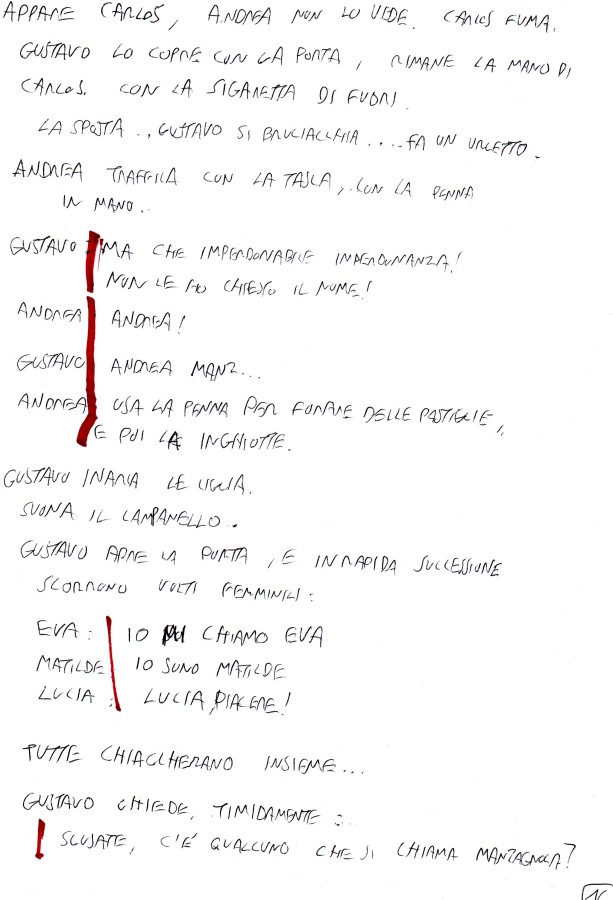 APPARE CARLOS, ANDREA NON LO VEDE. CARLOS FUMA.
GUSTAVO LO COPRE CON LA PORTA, RIMANE LA MANO DI
CARLOS. CON LA SIGARETTA DI FUORI.
LA SPOSTA.., GUSTAVO SI BRUCIACCHIA.... FA UN URLETTO.
ANDREA TRAFFICA CON LA TASCA, CON LA PENNA
IN MANO..
GUSTAVO : MA CHE IMPERDONABILE INPERDONANZA!
NON LE HO CHIESTO IL NOME!
ANDREA ANDREA!
GUSTAVO ANDREA MANZ...
ANDREA USA LA PENNA PER FORARE DELLE PASTIGLIE,
E POI LA INGHIOTTE.
GUSTAVO INARCA LE CIGLIA.
SUONA IL CAMPANELLO..
GUSTAVO APRE LA PORTA, E IN RAPIDA SUCCESSIONE
SCORRONO VOLTI FEMMINILI:
EVA: IO MI CHIAMO EVA
MATILDE IO SONO MATILDE
LUCIA: LUCIA, PIACERE!
TUTTE CHIACCHERANO INSIEME...
GUSTAVO CHIEDE, TIMIDAMENTE:..
SCUSATE, C'È QUALCUNO CHE SI CHIAMA MANZAGNOLA?